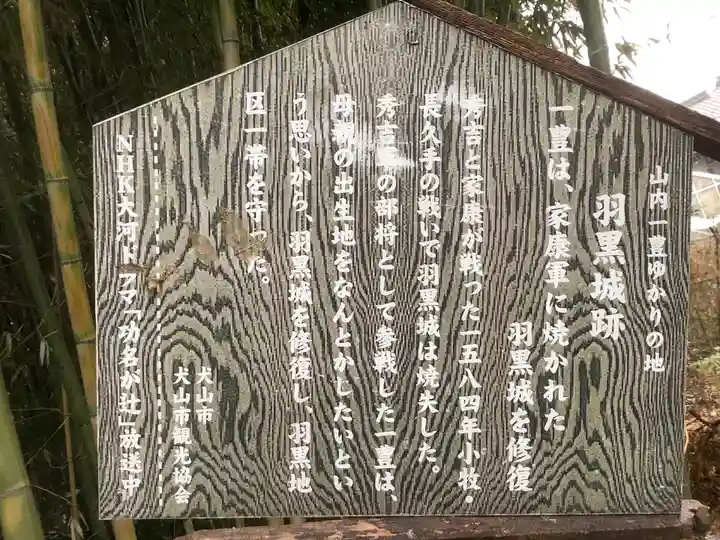 山内一豊ゆかりの地
羽黒城跡
一豊は、家康軍に焼かれた
羽黒城を修復
秀吉と家康が戦った一五八四年小牧・
長久手の戦いで羽黒城は焼失した。
秀吉の部将として参戦した一豊は、
母親の出生地をなんとかしたいとい
う思いから、羽黒城を修復し、羽黒地
区一帯を守った。
犬山市
犬山市観光協会
NHK大河ドラマ「功名が辻」放送中